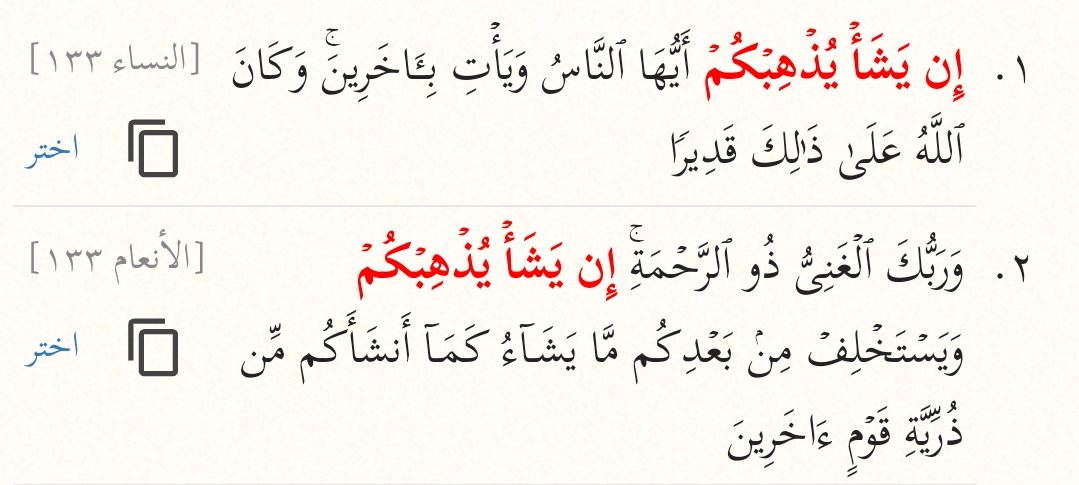 ١. إِن يَشَأۡ يُذۡهِبۡكُمۡ أَيُّهَا ٱلنَّاسُ وَيَأۡتِ بِـَٔاخَرِينَۚ وَكَانَ [النساء ١٣٣]
ٱللَّهُ عَلَىٰ ذَٰلِكَ قَدِيرٗا
اختر
٢. وَرَبُّكَ ٱلۡغَنِيُّ ذُو ٱلرَّحۡمَةِۚ إِن يَشَأۡ يُذۡهِبۡكُمۡ [الأنعام ١٣٣]
وَيَسۡتَخۡلِفۡ مِنۢ بَعۡدِكُم مَّا يَشَآءُ كَمَآ أَنشَأَكُم مِّن
اختر
ذُرِّيَّةِ قَوۡمٍ ءَاخَرِينَ